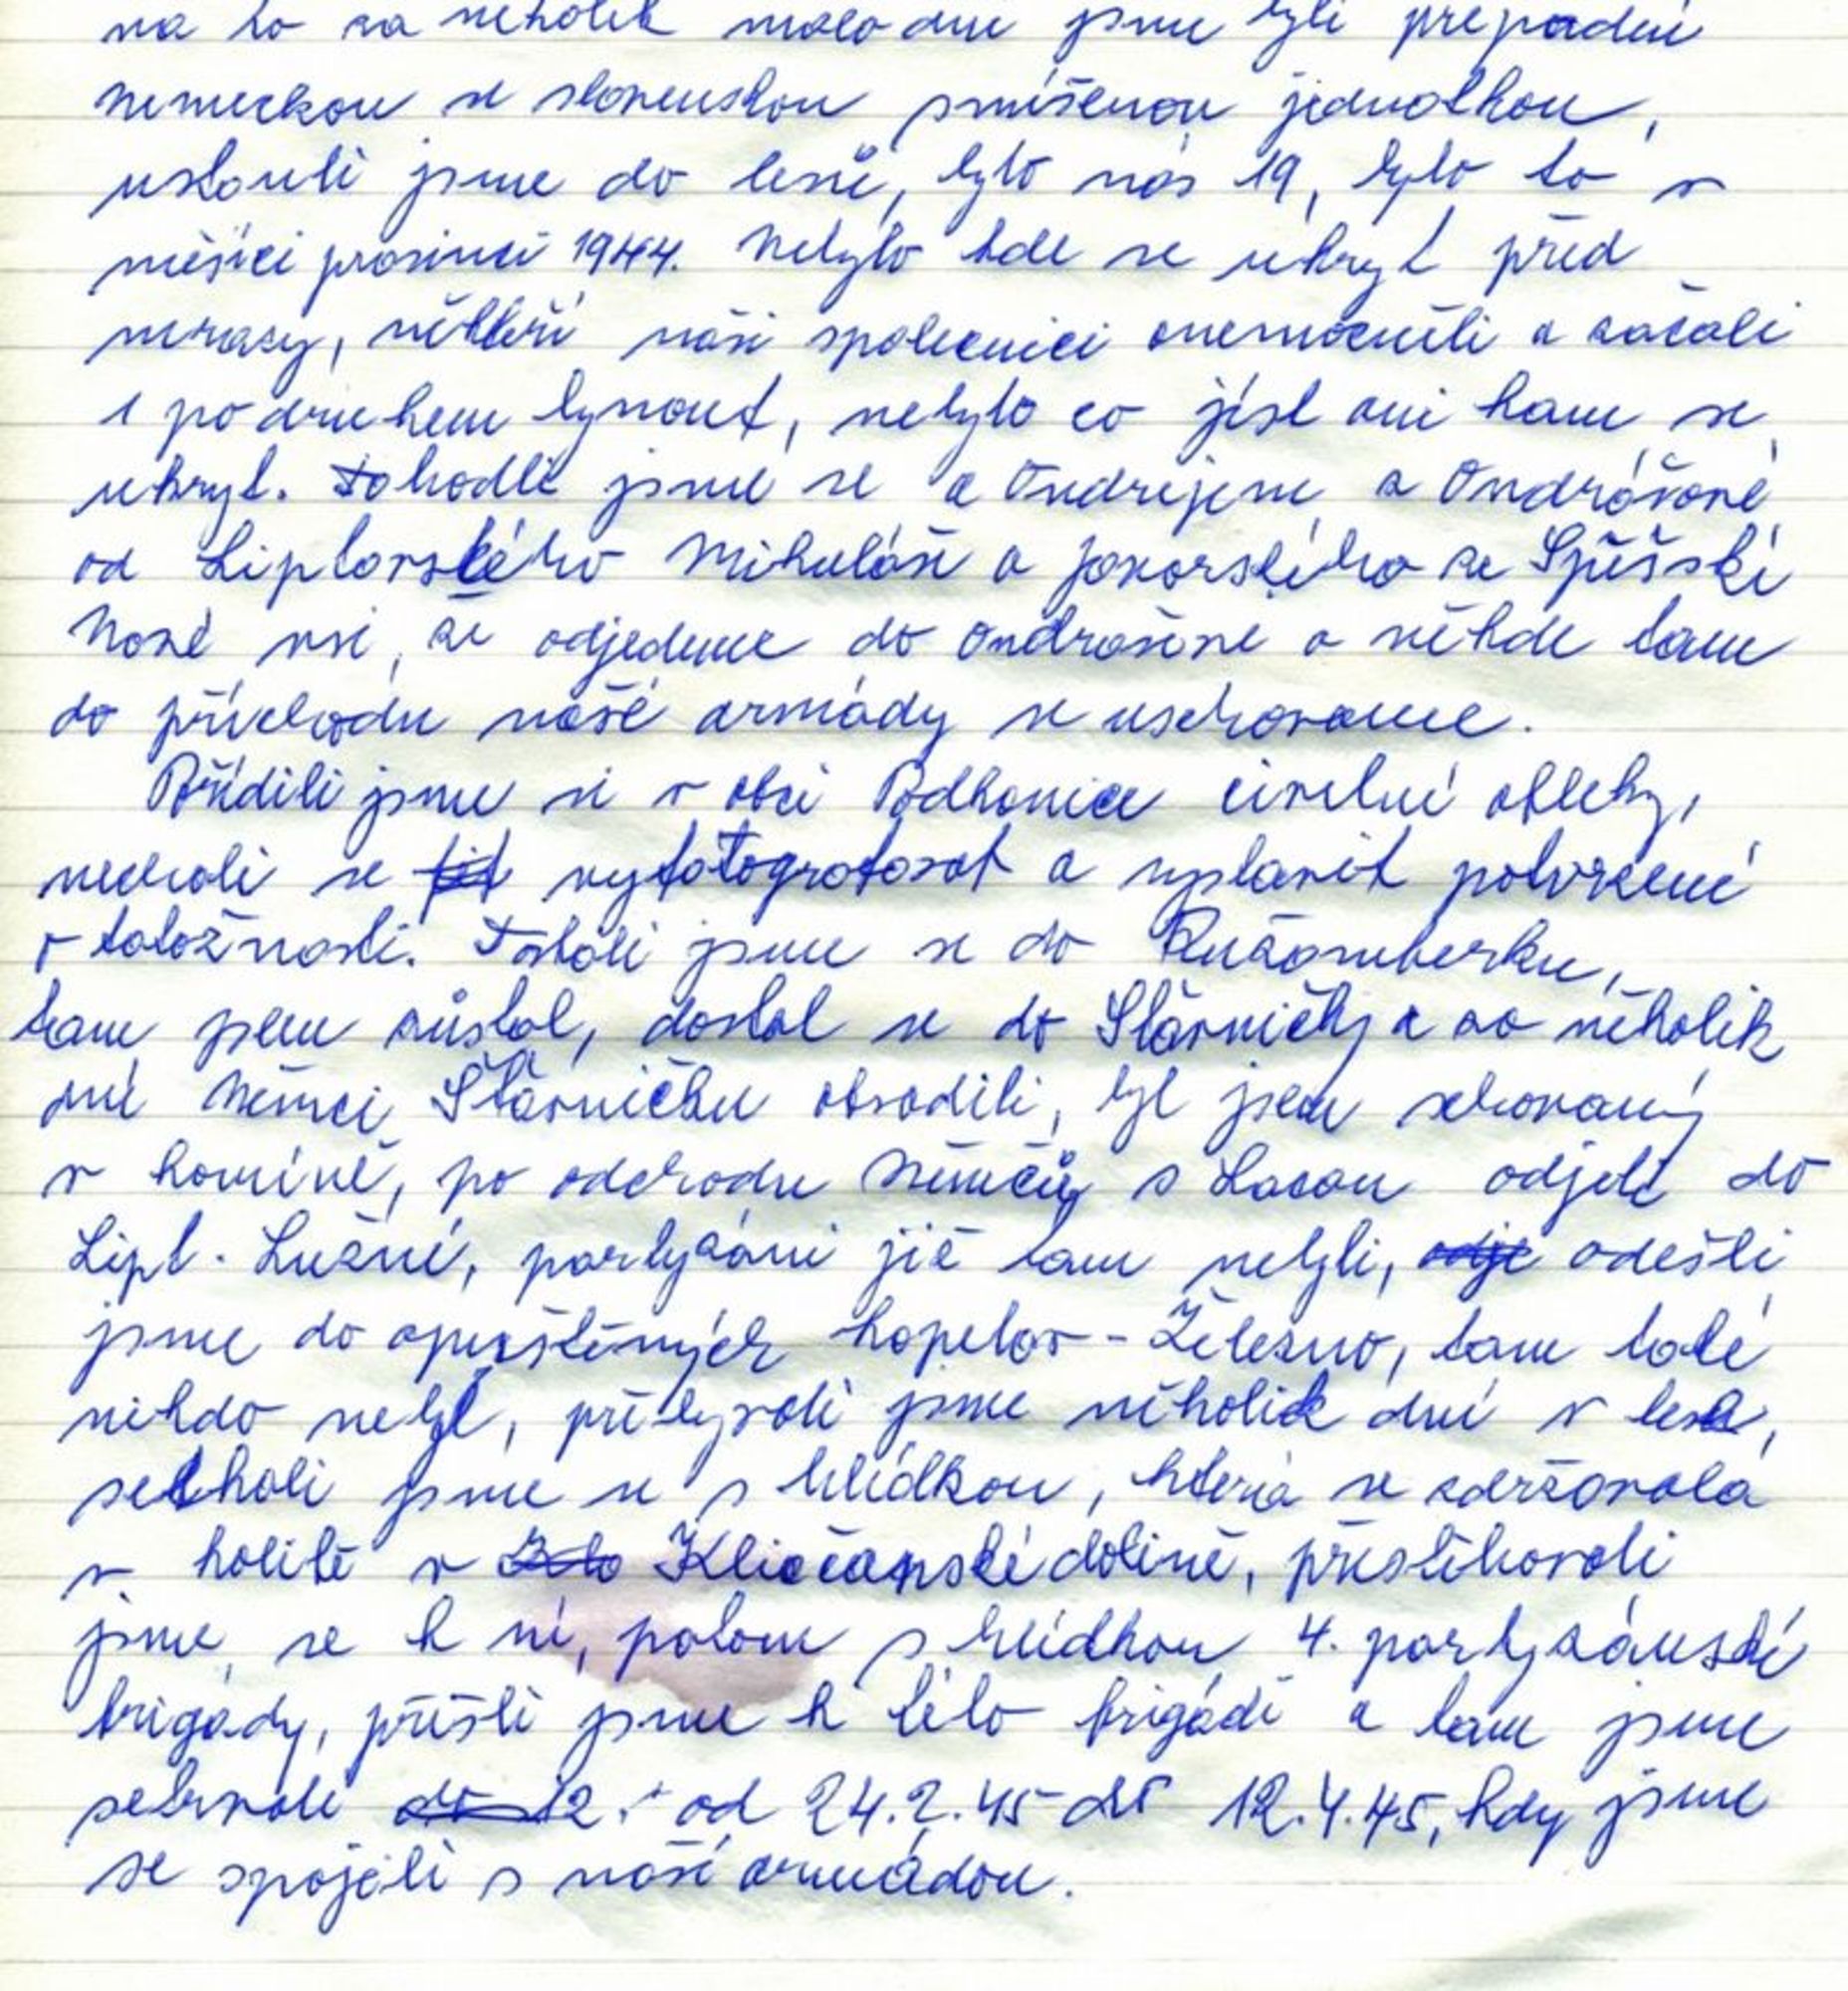 na to za několik málo dní jsme byli přepadeni
Německou se slovenskou smíšenou jednotkou,
ustoupili jsme do lesů, bylo nás 19, bylo to v
měsíci prosinci 1944. Nebylo kde se ukrýt před
mrazy, někteří naši společnici onemocněli a začali
1 po druhem hynout, nebylo co jíst ani kam se
ukrýt. Dohodli jsme se s Ondrejem z Ondrášové
od Liptovského Mikuláše a Javorského ze Spišské
Nové vsi, že odjedeme do Ondrašové a někde tam
do příchodu naší armády se uschováme.
Pořídili jsme si v obci Podkonice civilní obleky,
nechali se vyfotografovat a vystavit potvrzení
o totožnosti. Dostali jsme se do Ružomberku,
tam jsem zůstal, dostal se do Štiavničky a za několik
dní Němci Štiavničku obsadili, byl jsem schovaný
v komíně, po odchodu Němců s Lacou odjeli do
Lipt. Lužné, partyzáni již tam nebyli, odje odešli
jsme do opuštěných kopelov - Železno, tam také
nikdo nebyl, přebývali jsme několik dní v lese,
setkali jsme se s hlídkou, která se zdržovala
v kolibě v Kliačanské dolině, přestěhovali
jsme se k ní, potom s hlídkou 4. partyzánské
brigády, přišli jsme k této brigádě a tam jsme
setrvali do 12. od 24.2.45 do 12.4.45, kdy jsme
se spojili s naší armádou.